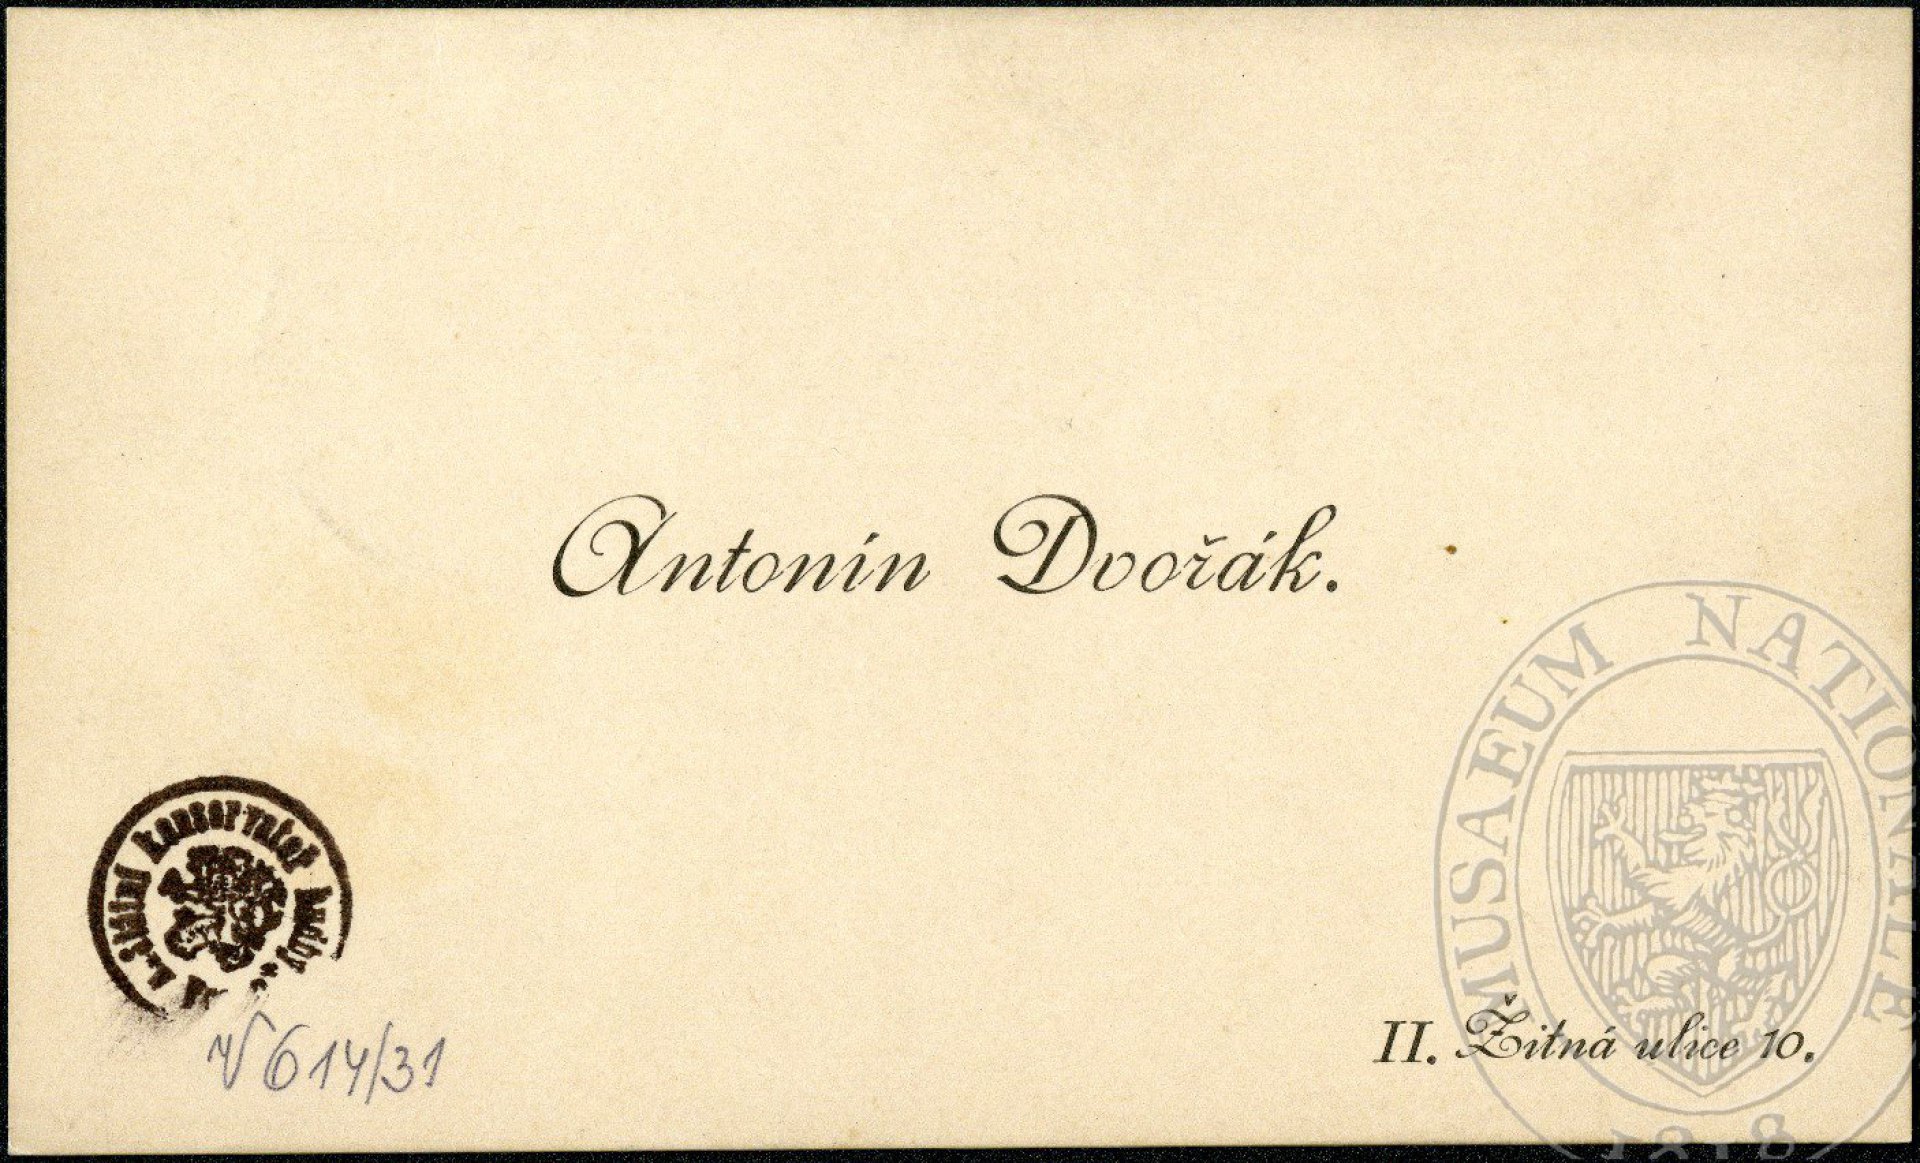 Antonín Dvořák.
MUSAEUM NATIONALE
Státní konservatoř hudby
II. Žitná ulice 10.
614/31
1818